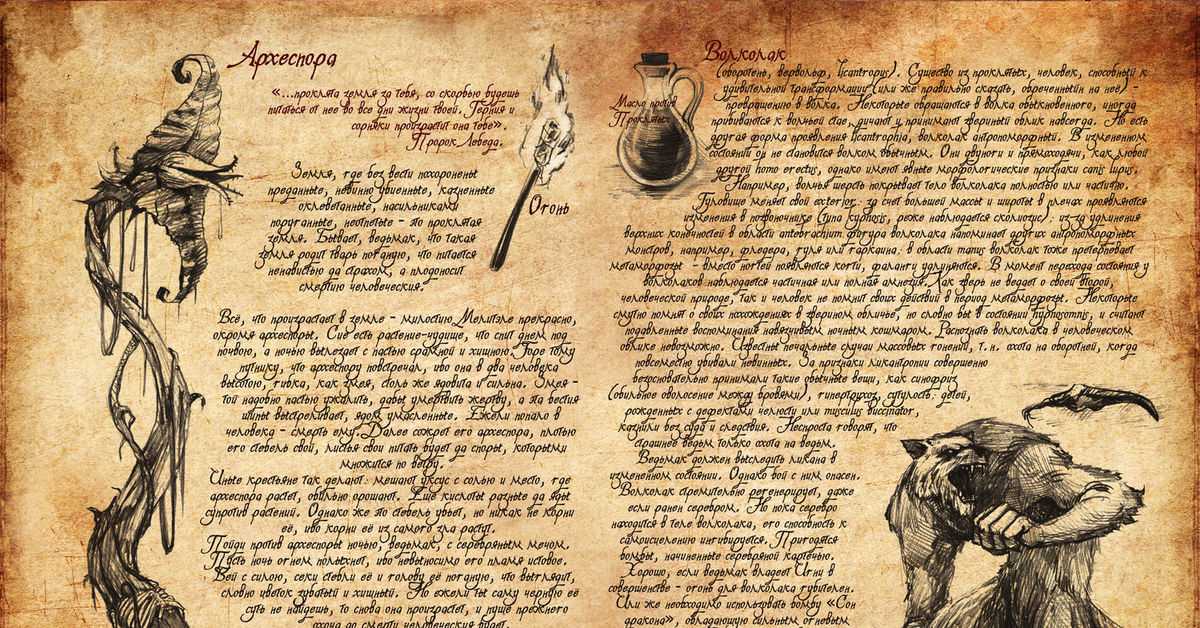 Археспора
«...проклята земля за тебя, со скорбью будешь
питаться от нее во все дни жизни твоей. Терния и
сорняки произрастит она тебе».
Пророк Лебеда.
Огонь
Земля, где без вести похороненные
преданные, невинно убиенные, казненные
оклеветанные, насильниками
поруганные, неотпетые - это проклятая
земля. Бывает, ведьмак, что такая
земля родит тварь поганую, что питается
ненавистью да страхом, а плодоносит
смертию человеческия.
Всё, что произрастает в земле - милостию Мелитэле прекрасно,
окромя археспоры. Сие есть растение-чудище, что спит днем под
почвою, а ночью вылезает с пастью срамной и хищною. Горе тому
путнику, что археспору повстречал, ибо она в два человека
высотою, гибка, как змея, столь же ядовита и сильна. Змея -
той надобно пастью ужалить, дабы умертвить жертву, а эта бестия
шипы выстреливает, ядом умасленные. Ежели попало в
человека - смерть ему. Далее сожрет его археспора, плотью
его стебель свой, листья свои питать будет да споры, которыми
множится по ветру.
Иные крестьяне так делают: мешают уксус с солью и место, где
археспора растет, обильно орошают. Ещё кислоты разные да яды
супротив растений. Однако же это стебель убьет, но никак не корни
её, ибо корни её из самого зла растут.
Пойди против археспоры ночью, ведьмак, с серебряным мечом.
Пусть ночь огнем полыхнет, ибо невыносимо его пламя истовое.
Бей с силою, секи стебли её и голову её поганую, что выглядит,
словно цветок зубатый и хищный. Но ежели ты саму черную её
суть не найдешь, то снова она произрастет, и пуще прежнего
охоча до смерти человеческия будет.
Волколак
Масло против
Проклятых
(оборотень, вервольф, licantropus). Существо из проклятых, человек, способный к
удивительной трансформации (или же правильно сказать, обреченный на нее) -
превращению в волка. Некоторые обращаются в волка обыкновенного, иногда
прибиваются к волчьей стае, дичают и принимают звериный облик навсегда. Но есть
другая форма проявления licantrophia, волколак антропоморфный. В измененном
состоянии он не становится волком обычным. Они двуноги и прямоходячи, как любой
другой homo erectus, однако имеют явные морфологические признаки canis lupus.
Например, волчья шерсть покрывает тело волколака полностью или частично.
Туловище меняет свой exterior: за счет большей массы и широты в плечах проявляются
изменения в позвоночнике (типа kyphosis, реже наблюдается сколиозус): из-за удлинения
верхних конечностей в области antebrachium фигура волколака напоминает других антропоморфных
монстров, например, фледера, гуля или гаркаина: в области manus волколак тоже претерпевает
метаморфозы - вместо ногтей появляются когти, фаланги удлиняются. В момент перехода состояния у
волколаков наблюдается частичная или полная амнезия. Как зверь не ведает о своей второй,
человеческой природе, так и человек не помнит своих действий в период метаморфозы. Некоторые
смутно помнят о своих похождениях в зверином обличье, но словно бы в состоянии hypnosomnis, и считают
подавленные воспоминания навязчивым ночным кошмаром. Распознать волколака в человеческом
облике невозможно. Известны печальные случаи массовых гонений, т. н. охота на оборотней, когда
повсеместно убивали невинных. За признаки ликантропии совершенно
безосновательно принимали такие обычные вещи, как синофриз
(обильное оволосение между бровями), гипертрихоз, сутулость: детей,
рожденных с дефектами челюсти или musculus buccinator,
казнили без суда и следствия. Неспроста говорят, что
страшнее ведьм только охота на ведьм.
Ведьмак должен выследить ликана в
измененном состоянии. Однако бой с ним опасен.
Волколак стремительно регенерирует, даже
если ранен серебром. Но пока серебро
находится в теле волколака, его способность к
самоисцелению ингибируется. Пригодятся
бомбы, начиненные серебряной картечью.
Хорошо, если ведьмак владеет Игни в
совершенстве - огонь для волколака губителен.
Или же необходимо использовать бомбу «Сон
дракона», обладающую сильным огневым